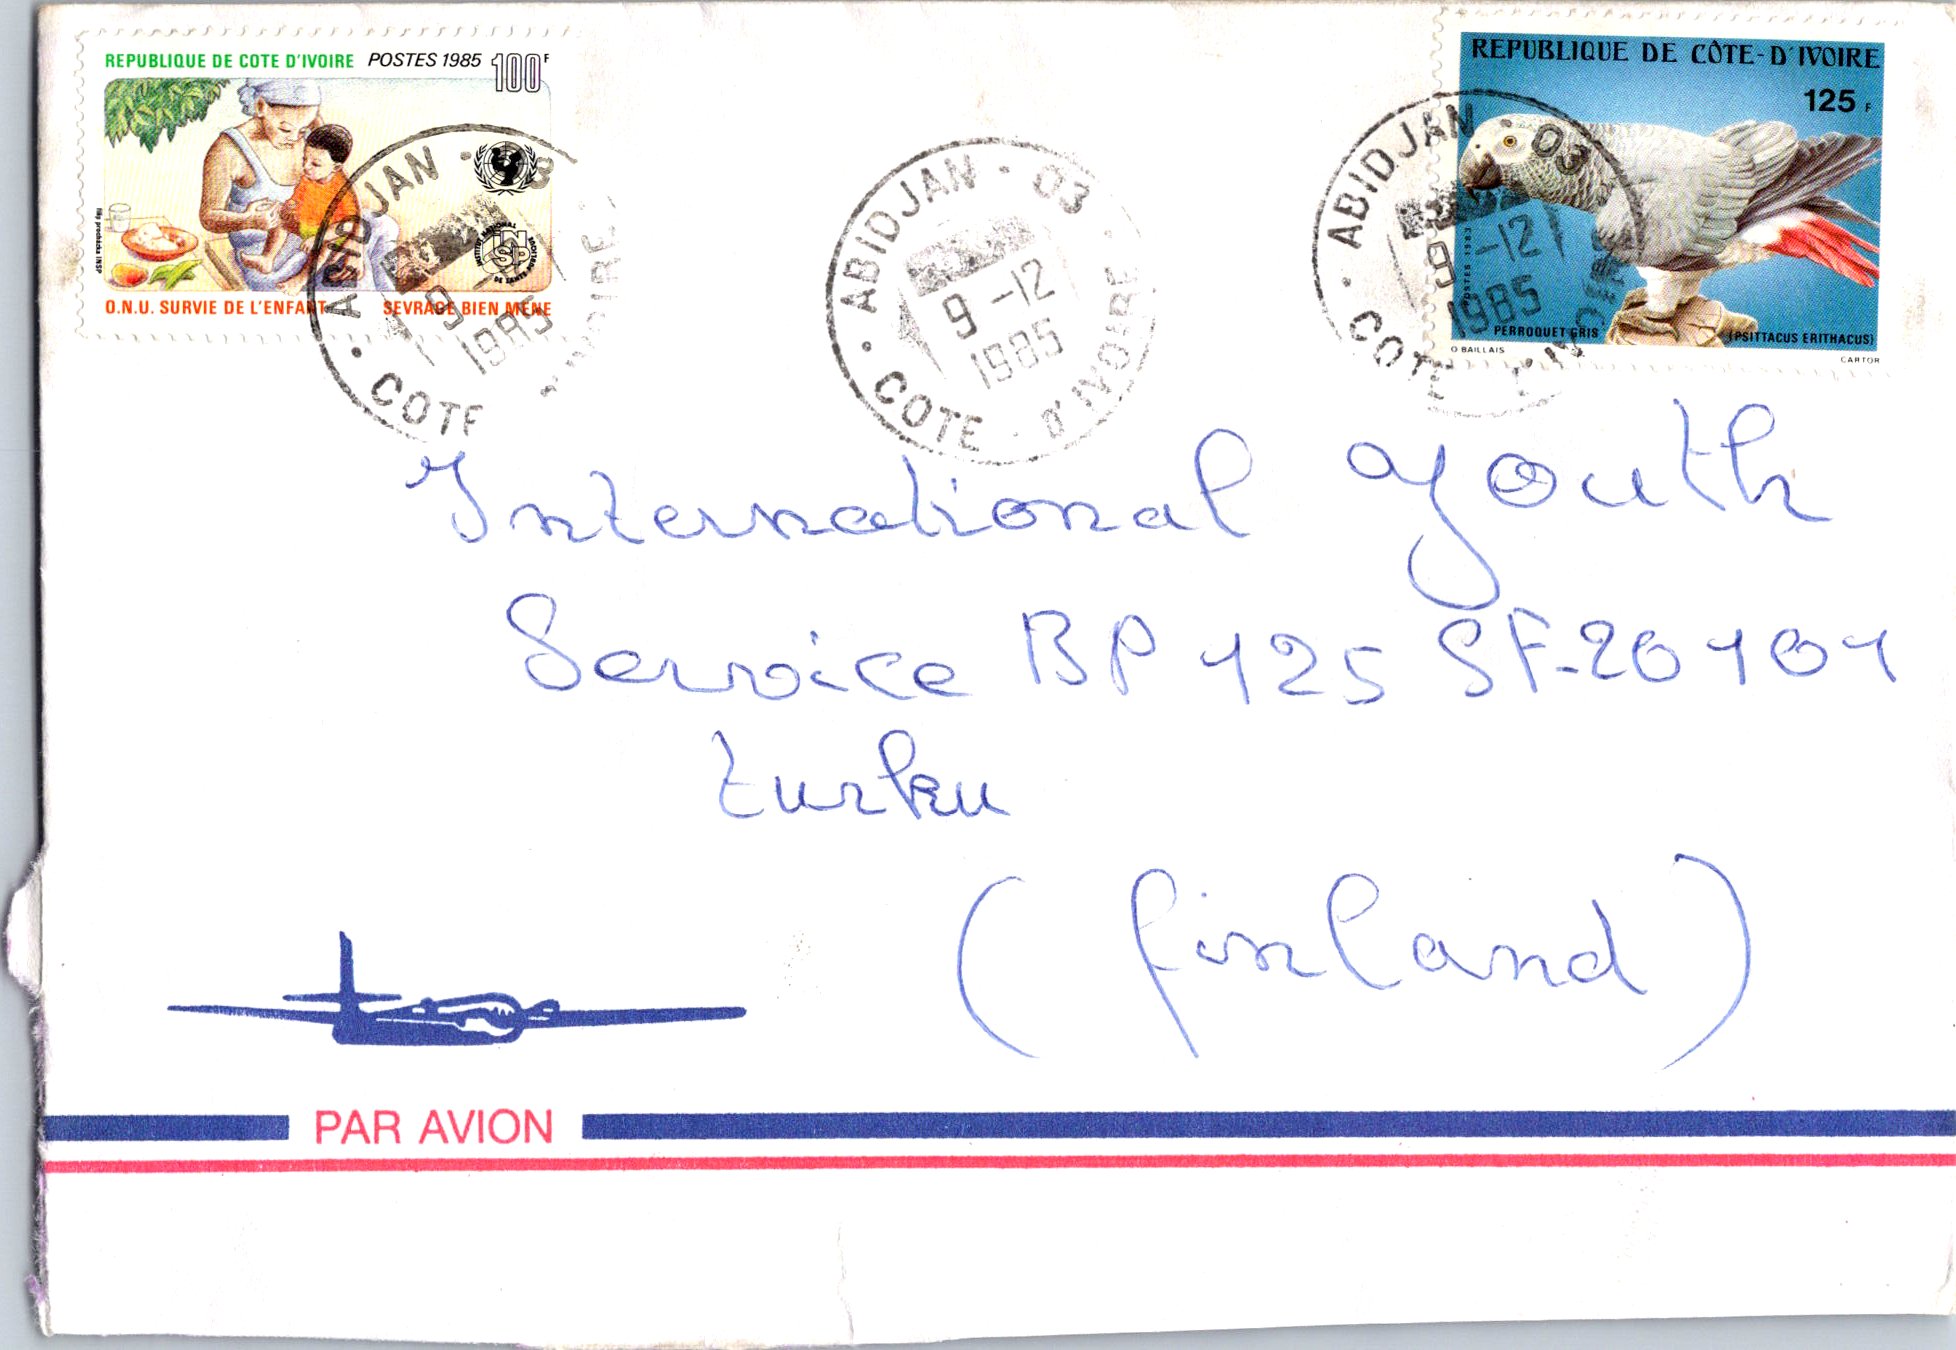 REPUBLIQUE DE COTE D'IVOIRE POSTES 1985 100F
O.N.U. SURVIE DE L'ENFANT SEVRAGE BIEN MENE
INSTITUT NATIONAL DE SANTE PUBLIQUE
INSP
ABIDJAN - 03
9 -
1985
COTE D'IVOIRE
ABIDJAN - 03
9 -12
1985
COTE - D'IVOIRE
REPUBLIQUE DE CÔTE-D'IVOIRE
125 F
POSTES 1983
PERROQUET GRIS (PSITTACUS ERITHACUS)
O BAILLAIS CARTOR
ABIDJAN - 03
9 -12
1985
COTE D'IVOIRE
International youth
Service BP 125 SF-20101
turku
(finland)
PAR AVION